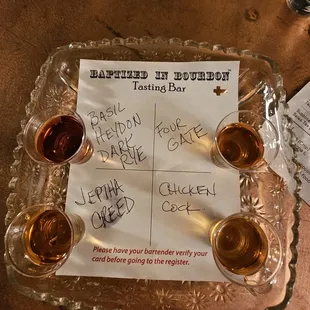 BAPTIZED IN BOURBON
Tasting Bar
BASIL
HEYDON
DARK
RYE
FOUR
GATE
JEPTHA
CREED
CHICKEN
COCK
Please have your bartender verify your
card before going to the register.